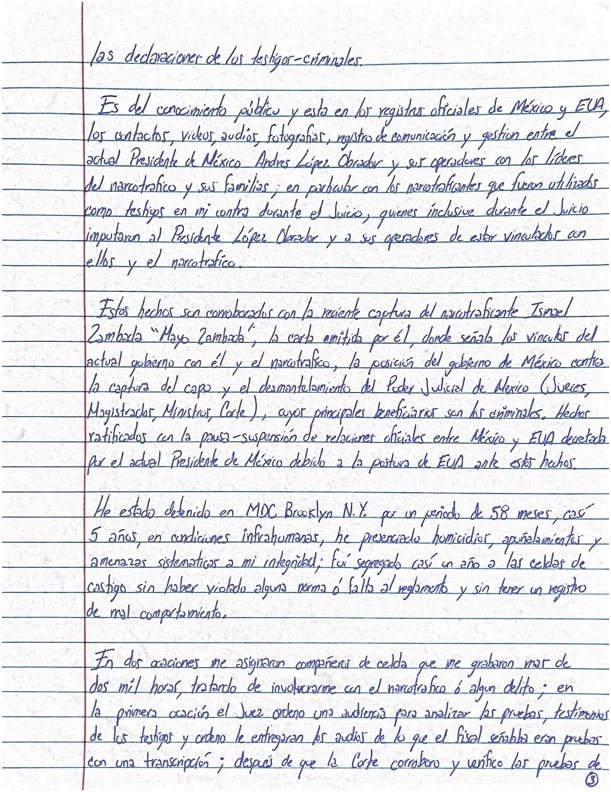 las declaraciones de los testigos-criminales.
Es del conocimiento público y esta en los registros oficiales de México y EUA,
los contactos, videos, audios, fotografias, registro de comunicación y gestion entre el
actual Presidente de México Andres López Obrador y sus operadores con los líderes
del narcotrafico y sus familias; en particular con los narcotraficantes que fueron utilizados
como testigos en mi contra durante el Juicio, quienes inclusive durante el Juicio
imputaron al Presidente López Obrador y a sus operadores de estar vinculados con
ellos y el narcotrafico.
Estos hechos son corroborados con la reciente captura del narcotraficante Ismael
Zambada "Mayo Zambada", la carta emitida por él, donde señala los vinculos del
actual gobierno con él y el narcotrafico, la posición del gobierno de México contra
la captura del capo y el desmantelamiento del Poder Judicial de Mexico (Jueces,
Magistrados, Ministros, Corte), cuyos principales beneficiarios son los criminales. Hechos
ratificados con la pausa-suspensión de relaciones oficiales entre México y EUA decretada
por el actual Presidente de México debido a la postura de EUA ante estos hechos.
He estado detenido en MDC Brooklyn N.Y. por un periodo de 58 meses, casí
5 años, en condiciones infrahumanas, he prexenciado homicidios, apuñalamientos y
amenazas sistematicas a mi integridad; fuí segregado casí un año a las celdas de
castigo sin haber violado alguna norma ó falta al reglamento y sin tener un registro
de mal comportamiento.
En dos ocaciones me asignaron compañeros de celda que me grabaron mas de
dos mil horas, tratando de involucrarme con el narcotrafico ó algun delito; en
la primera ocación el Juez ordeno una audiencia para analizar las pruebas, testimonios
de los testigos y ordeno le entregaran los audios de lo que el fiscal señalaba eran pruebas
con una transcripción; después de que la Corte corroboro y verifico las pruebas de
3